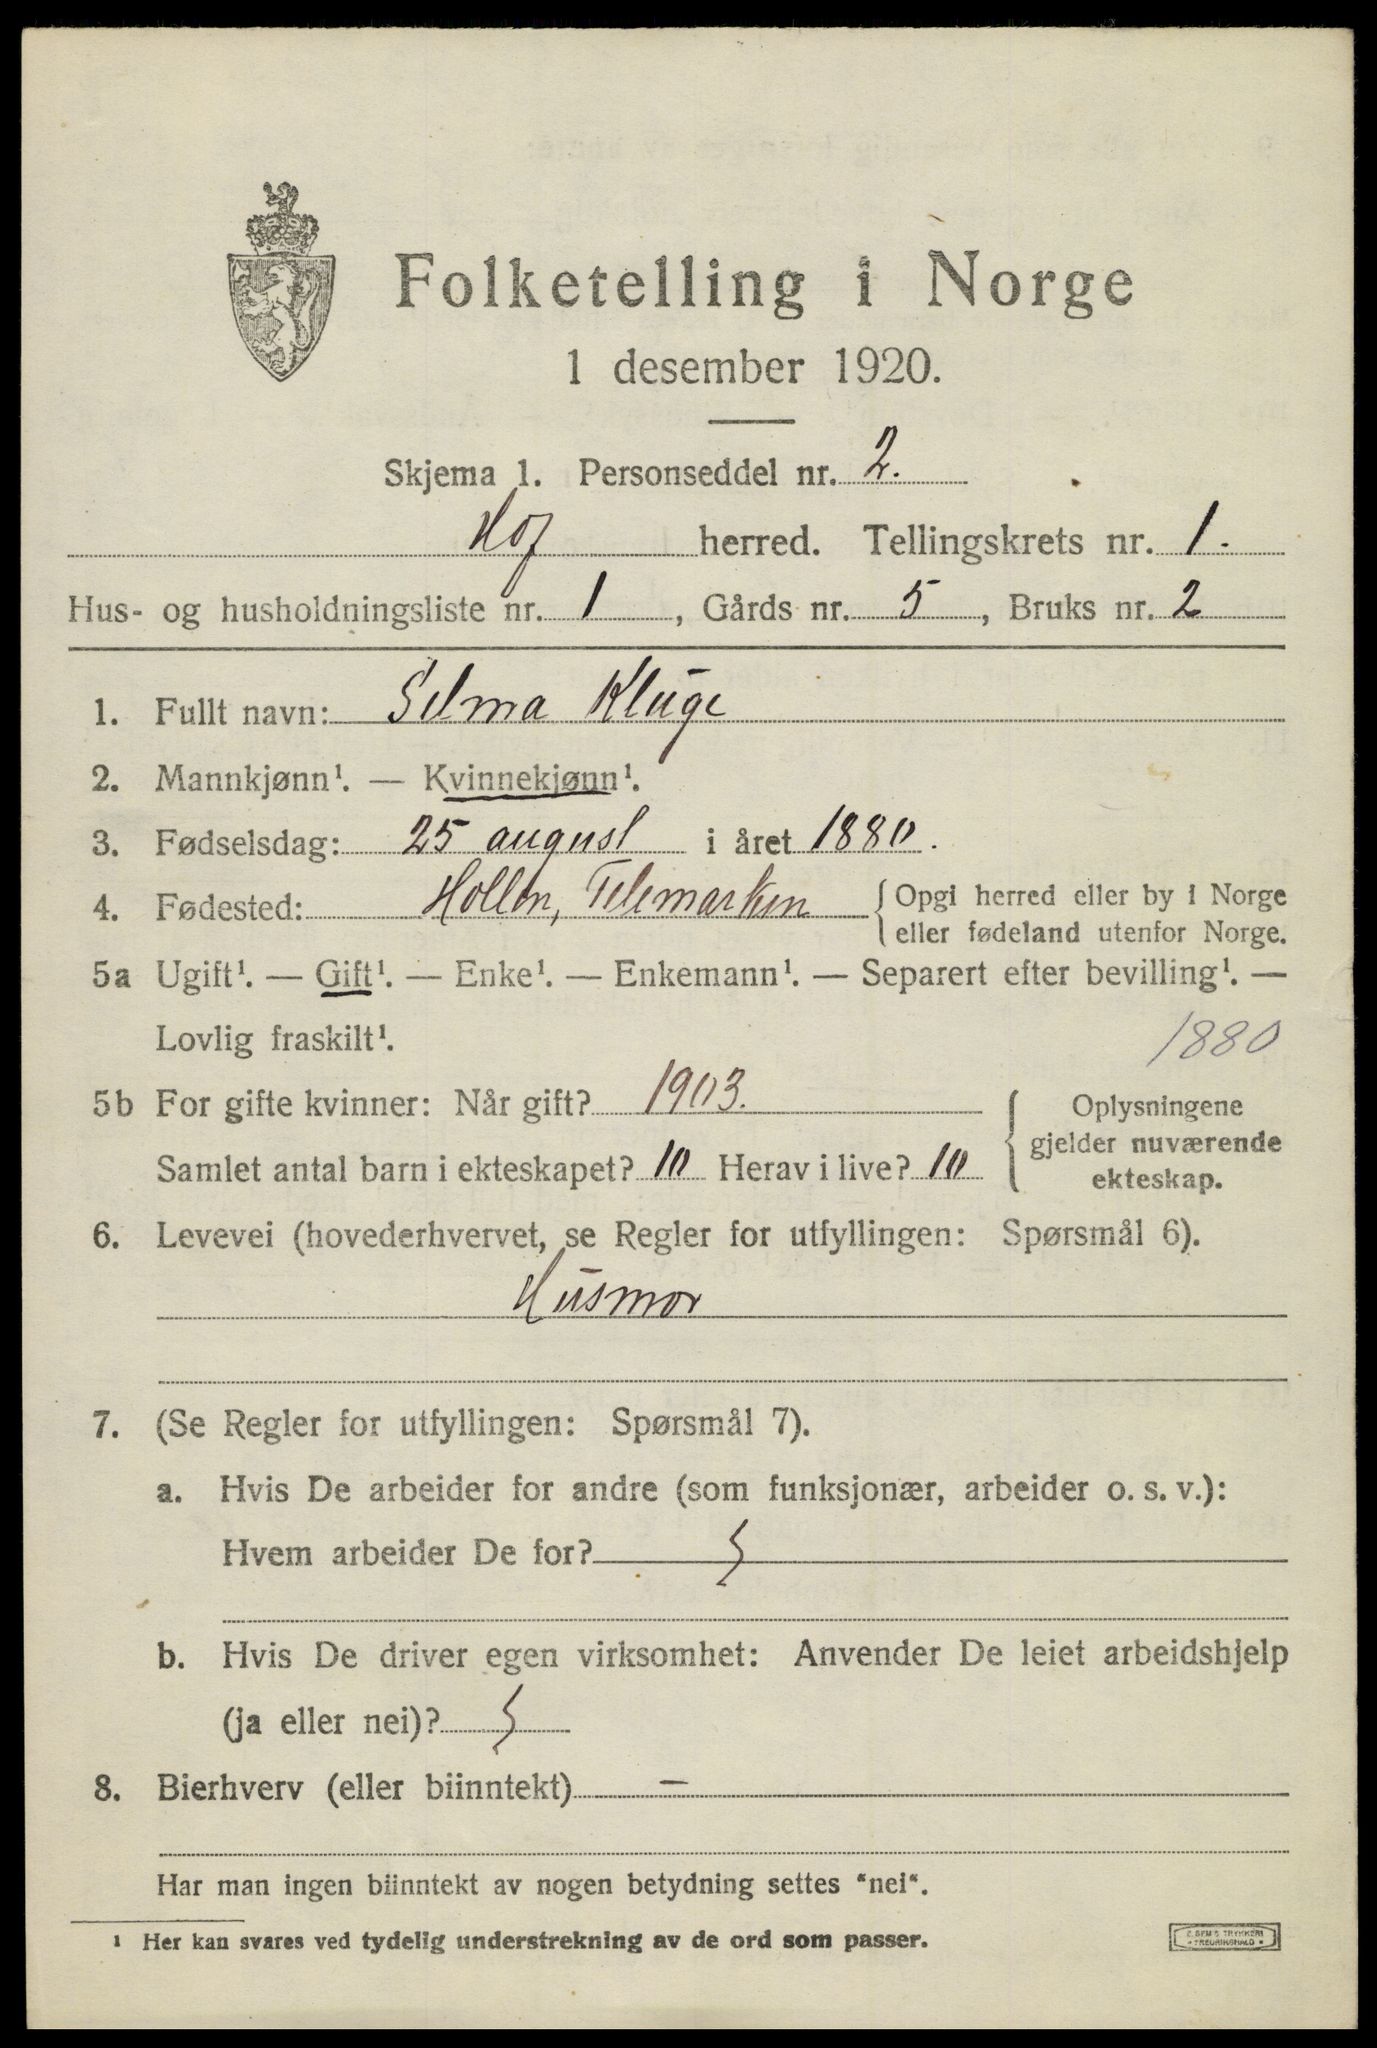 Folketelling i Norge
1 desember 1920.
Skjema 1. Personseddel nr. 2.
Hof herred. Tellingskrets nr. 1.
Hus- og husholdningsliste nr. 1, Gårds nr. 5, Bruks nr. 2
1. Fullt navn: Selma Kluge
2. Mannkjønn¹. — Kvinnekjønn¹.
3. Fødselsdag: 25 august i året 1880.
4. Fødested: Hollen, Telemarken { Opgi herred eller by i Norge
eller fødeland utenfor Norge.
5a Ugift¹. — Gift¹. — Enke¹. — Enkemann¹. — Separert efter bevilling¹. —
Lovlig fraskilt¹.
1880
5b For gifte kvinner: Når gift? 1903.
Samlet antal barn i ekteskapet? 10 Herav i live? 10
Oplysningene
gjelder nuværende
ekteskap.
6. Levevei (hovederhvervet, se Regler for utfyllingen: Spørsmål 6).
Husmor
7. (Se Regler for utfyllingen: Spørsmål 7).
a. Hvis De arbeider for andre (som funksjonær, arbeider o. s. v.):
Hvem arbeider De for?
b. Hvis De driver egen virksomhet: Anvender De leiet arbeidshjelp
(ja eller nei)?
8. Bierhverv (eller biinntekt) —
Har man ingen biinntekt av nogen betydning settes "nei".
¹ Her kan svares ved tydelig understrekning av de ord som passer.
TRYKKERI
FREDRIKSHALD